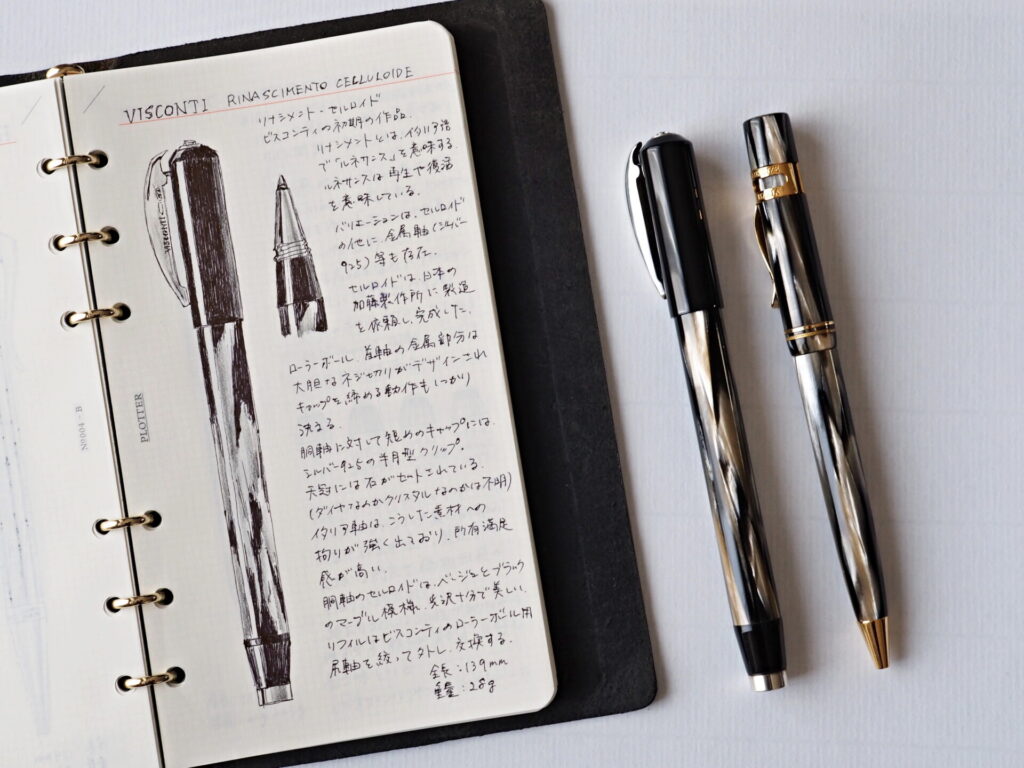 VISCONTI RINASCIMENTO CELLULOIDE
リナシメント・セルロイド
ビスコンティの初期の作品.
リナシメントとは、イタリア語
で「ルネサンス」を意味する.
ルネサンスは再生や復活
を意味している.
バリエーションは、セルロイド
の他に、金属軸(シルバー
925)等も存在.
セルロイドは、日本の
加藤製作所に製造
を依頼し、完成した.
ローラーボール、首軸の金属部分は
大胆なネジ切りがデザインされ
キャップを締める動作もしっかり
決まる.
胴軸に対して短めのキャップには、
シルバー925の半月型クリップ.
天冠には石がセットされている.
(ダイヤなんかクリスタルなのかは不明)
イタリア軸は、こうした素材への
拘りが強く出ており、所有満足
感が高い.
胴軸のセルロイドは、ベージュとブラック
のマーブル模様、光沢十分で美しい.
リフィルはビスコンティのローラーボール用
尻軸を絞って外し、交換する.
全長:139mm
重量:28g
VISCONTI
PLOTTER
Nº004-B